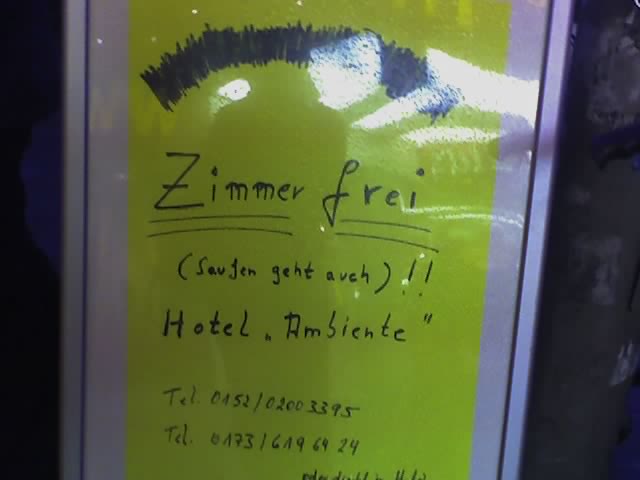 Zimmer frei
(Saufen geht auch)!!
Hotel „Ambiente"
Tel. 0152/02003395
Tel. 0173/6196424